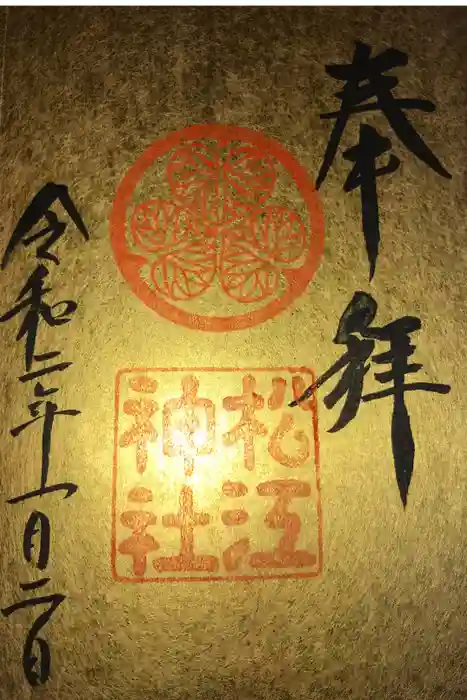 奉拝
松江
神社
令和二年十一月二日